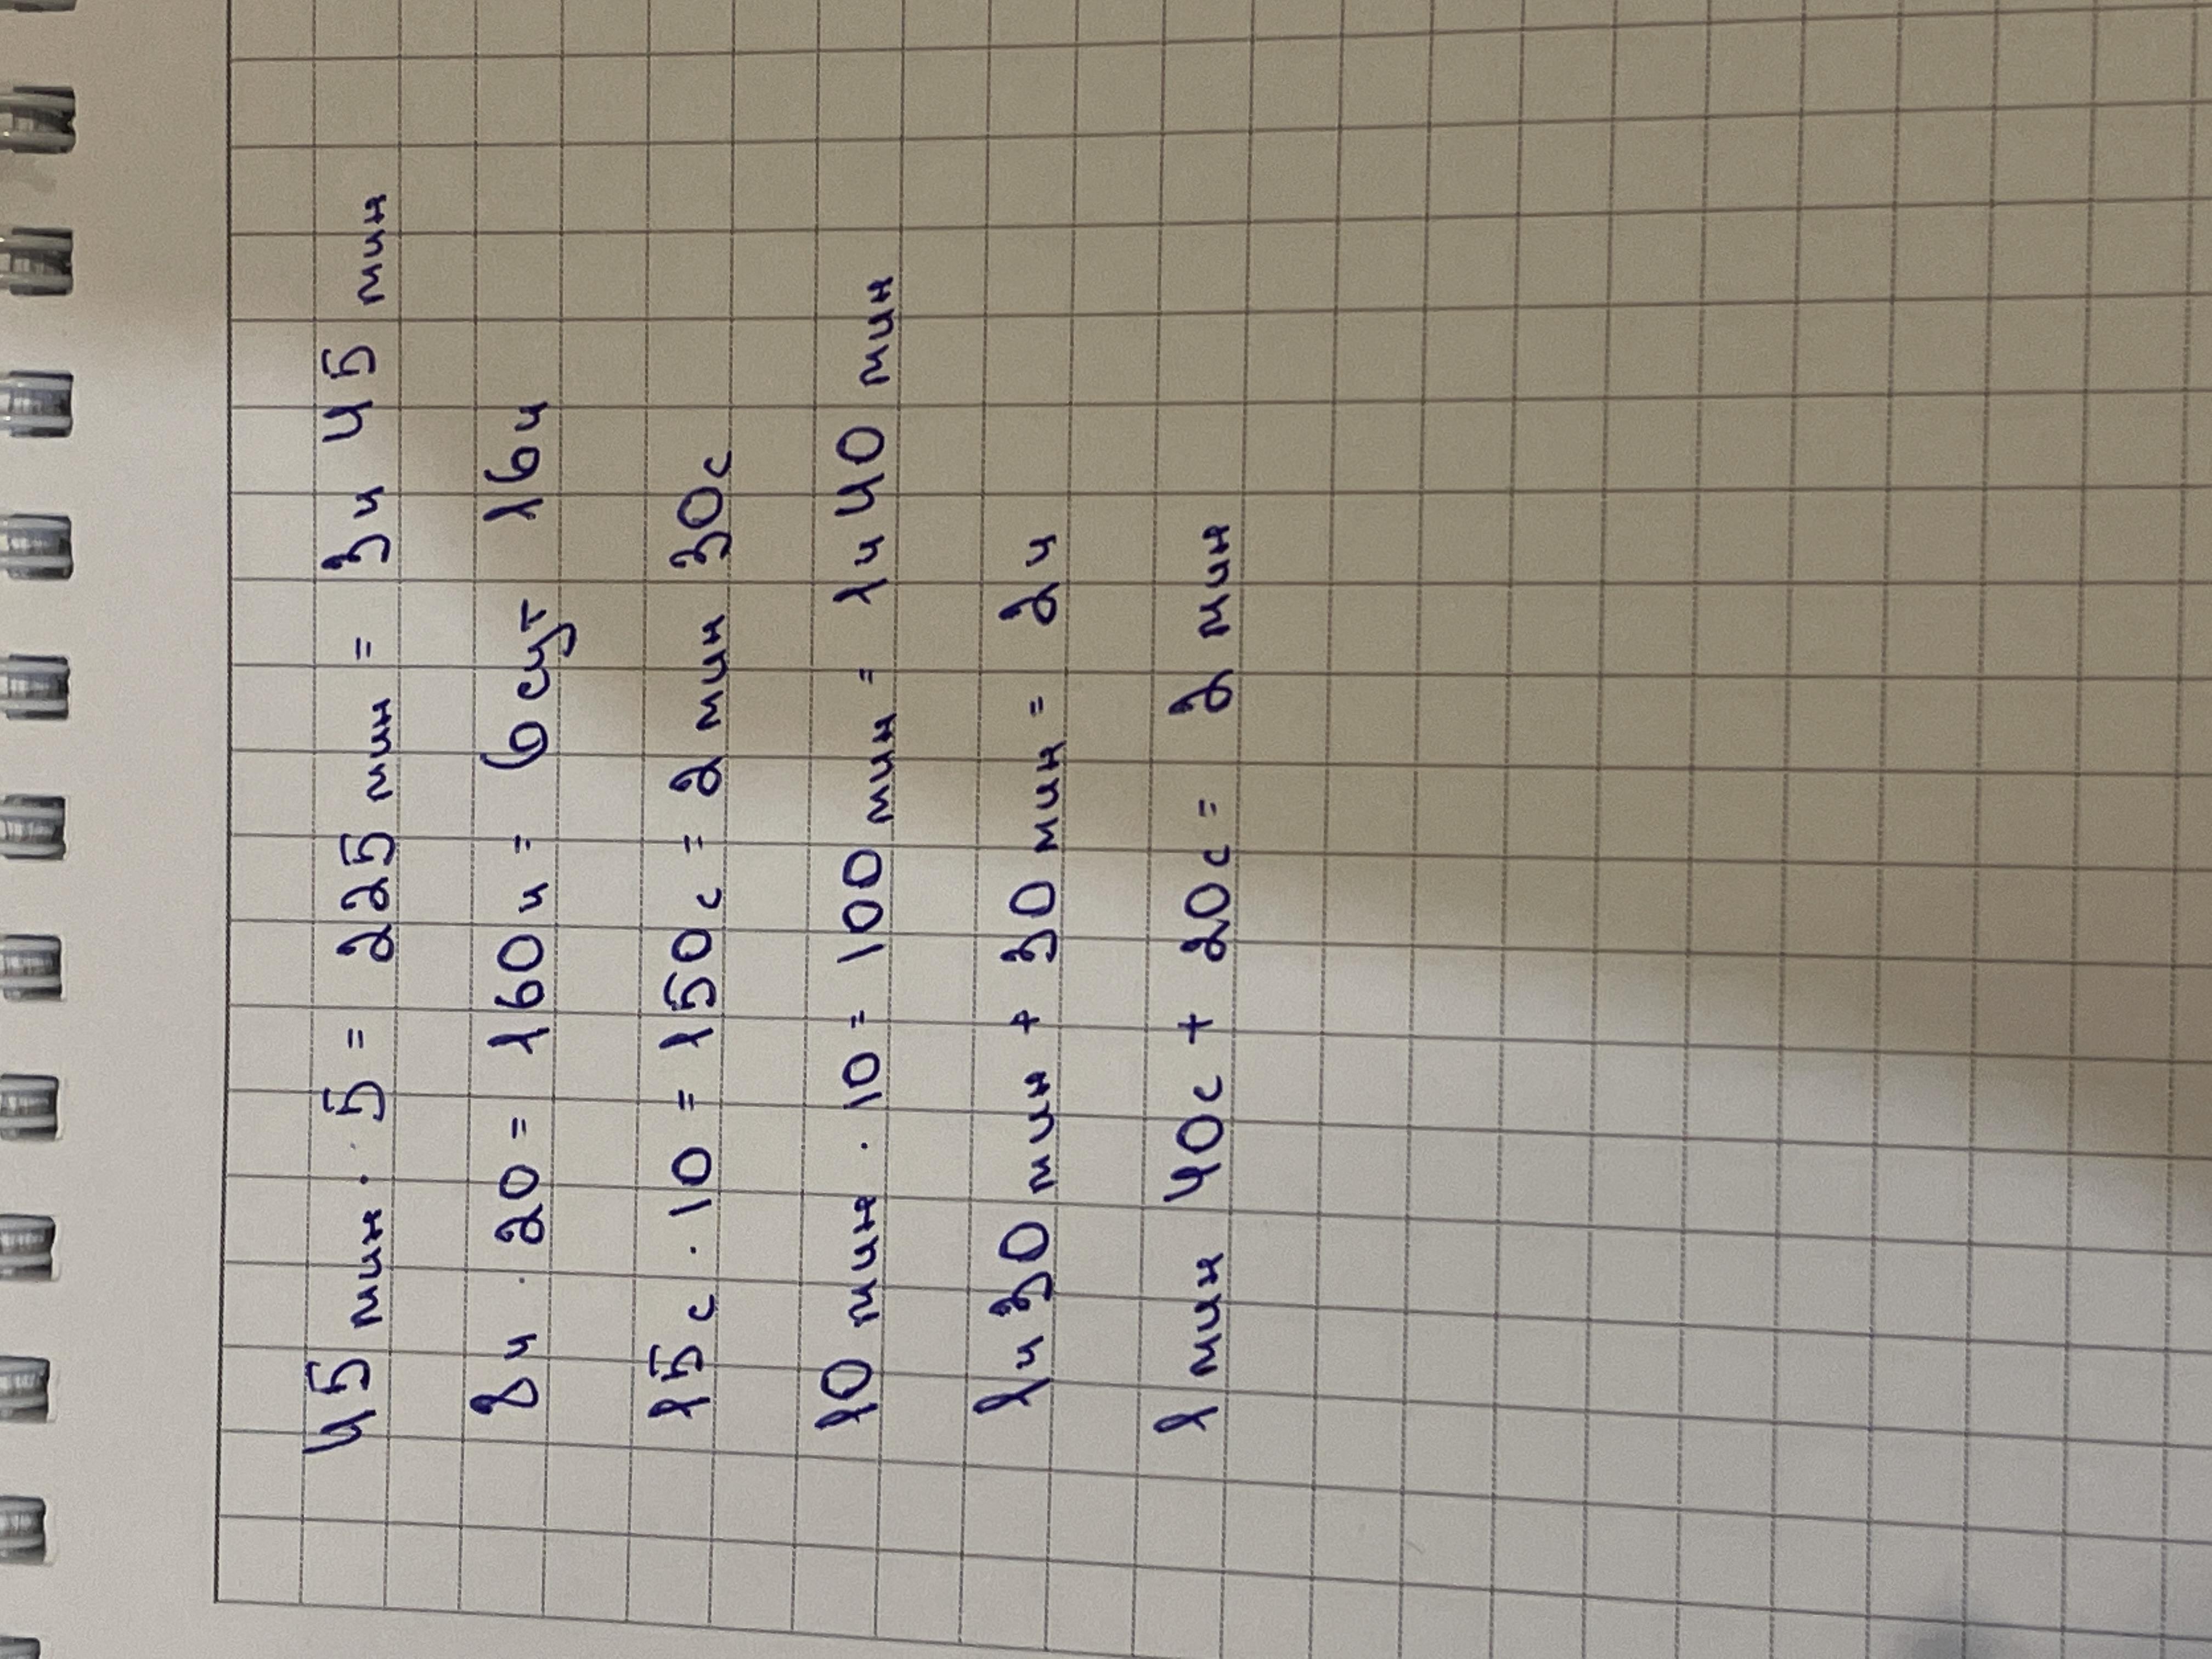 45 мин · 5 = 225 мин = 3ч 45 мин
8ч · 20 = 160ч = 6 сут 16ч
15с · 10 = 150с = 2 мин 30с
10 мин · 10 = 100 мин = 1ч 40 мин
1ч 30 мин + 30 мин = 2ч
1 мин 40с + 20с = 2 мин